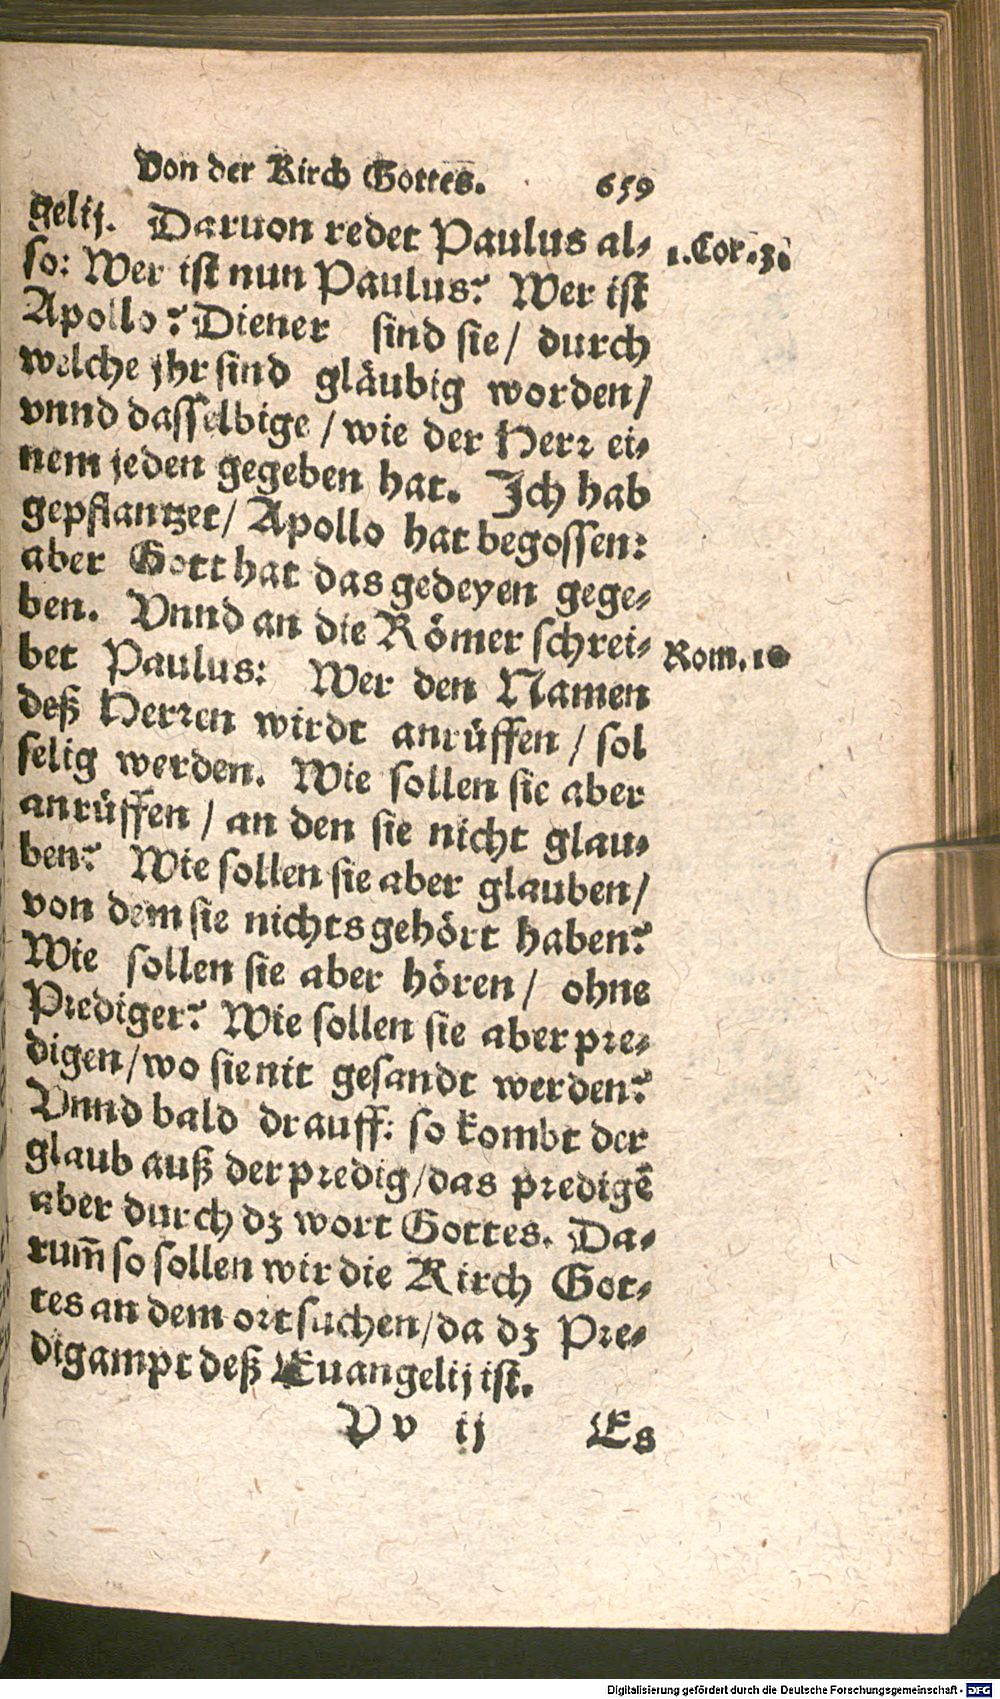 Von der Kirch Gottes. 659
gelij. Daruon redet Paulus al-
1.Cor.3.
so: Wer ist nun Paulus? Wer ist
Apollo? Diener sind sie / durch
welche jhr sind gläubig worden/
vnnd dasselbige / wie der Herr ei-
nem jeden gegeben hat. Ich hab
gepflantzet/ Apollo hat begossen:
aber Gott hat das gedeyen gege-
ben. Vnnd an die Römer schrei-
Rom. 10
bet Paulus: Wer den Namen
deß Herren wirdt anrüffen / sol
selig werden. Wie sollen sie aber
anrüffen / an den sie nicht glau-
ben? Wie sollen sie aber glauben/
von dem sie nichts gehört haben?
Wie sollen sie aber hören / ohne
Prediger? Wie sollen sie aber pre-
digen/wo sie nit gesandt werden?
Vnnd bald drauff: so kombt der
glaub auß der predig/das predigē
aber durch dz wort Gottes. Da-
rum̄ so sollen wir die Kirch Got-
tes an dem ort suchen/da dz Pre-
digampt deß Euangelij ist.
V v ij Es
Digitalisierung gefördert durch die Deutsche Forschungsgemeinschaft - DFG